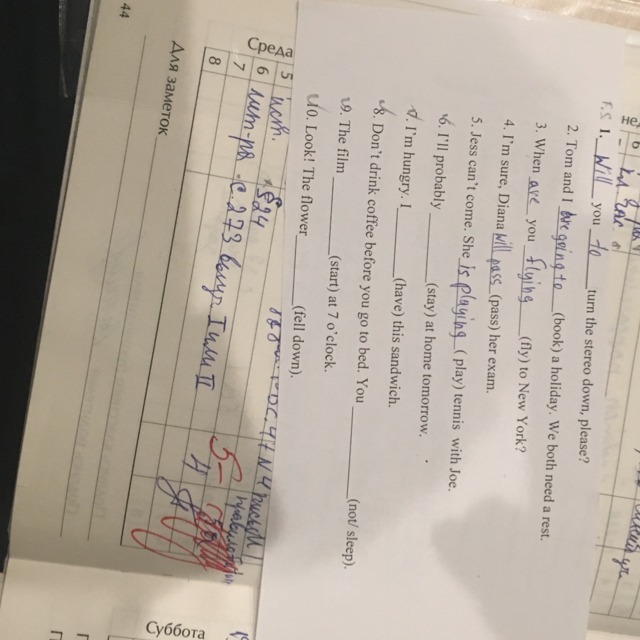 F.S 1. Will you to turn the stereo down, please?
2. Tom and I are going to (book) a holiday. We both need a rest.
3. When are you flying (fly) to New York?
4. I'm sure, Diana will pass (pass) her exam.
5. Jess can't come. She is playing ( play) tennis with Joe.
6. I'll probably ________(stay) at home tomorrow.
7. I'm hungry. I ________(have) this sandwich.
8. Don't drink coffee before you go to bed. You ________(not/ sleep).
9. The film ________(start) at 7 o'clock.
10. Look! The flower ________(fell down).
Среда
5 ист. §24
6 лит-ра с. 273 I или II
7
8 5- 4
Для заметок
44
Суббота